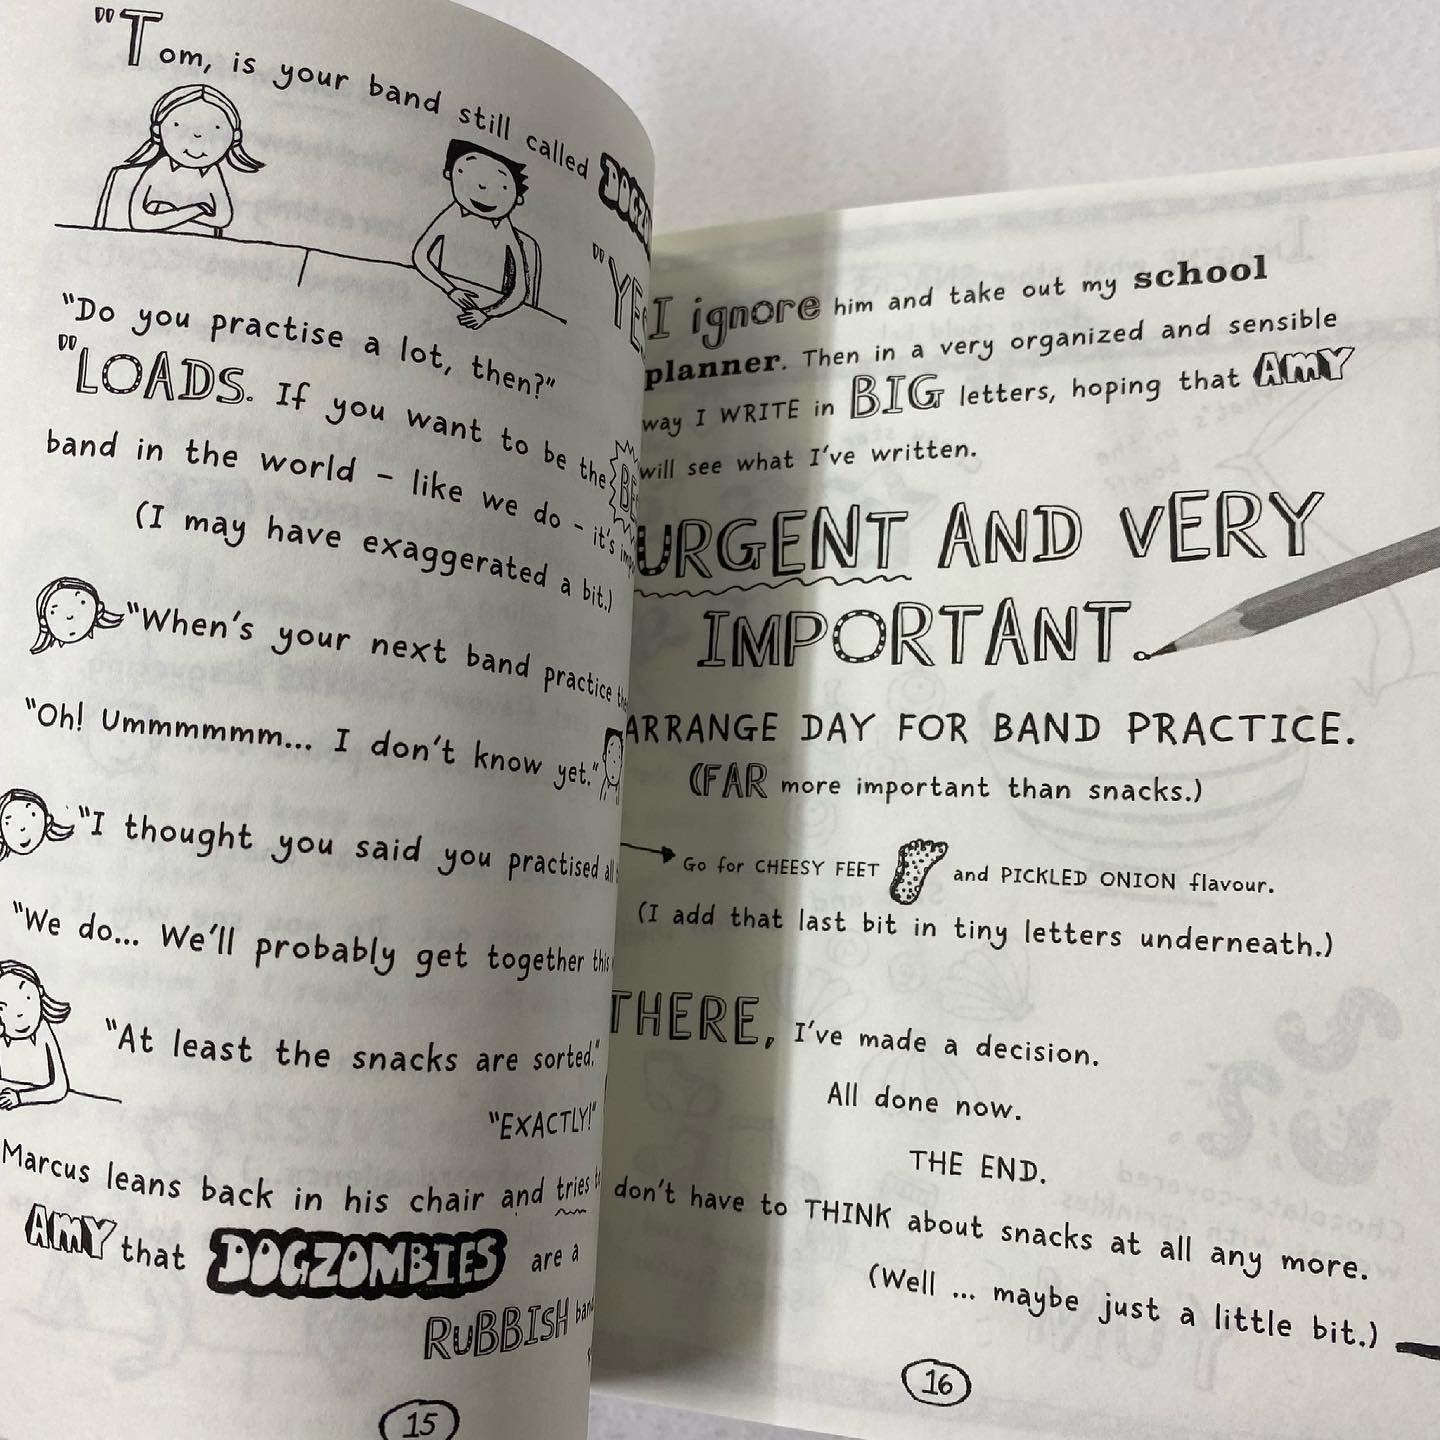 "Tom, is your band still called
"Do you practise a lot, then?"
"LOADS. If you want to be the
band in the world – like we do – it's
(I may have exaggerated a bit.)
"When's your next band practice
"Oh! Ummmmmm... I don't know yet."
"I thought you said you practised
"We do... We'll probably get together this
"At least the snacks are sorted."
"EXACTLY!"
Marcus leans back in his chair and tries
AMY that DOGZOMBIES are a
RUBBISH band
15
I ignore him and take out my school
planner. Then in a very organized and sensible
way I WRITE in BIG letters, hoping that AMY
will see what I've written.
URGENT AND VERY
IMPORTANT.
ARRANGE DAY FOR BAND PRACTICE.
(FAR more important than snacks.)
Go for CHEESY FEET and PICKLED ONION flavour.
(I add that last bit in tiny letters underneath.)
THERE, I've made a decision.
All done now.
THE END.
don't have to THINK about snacks at all any more.
(Well ... maybe just a little bit.)
16